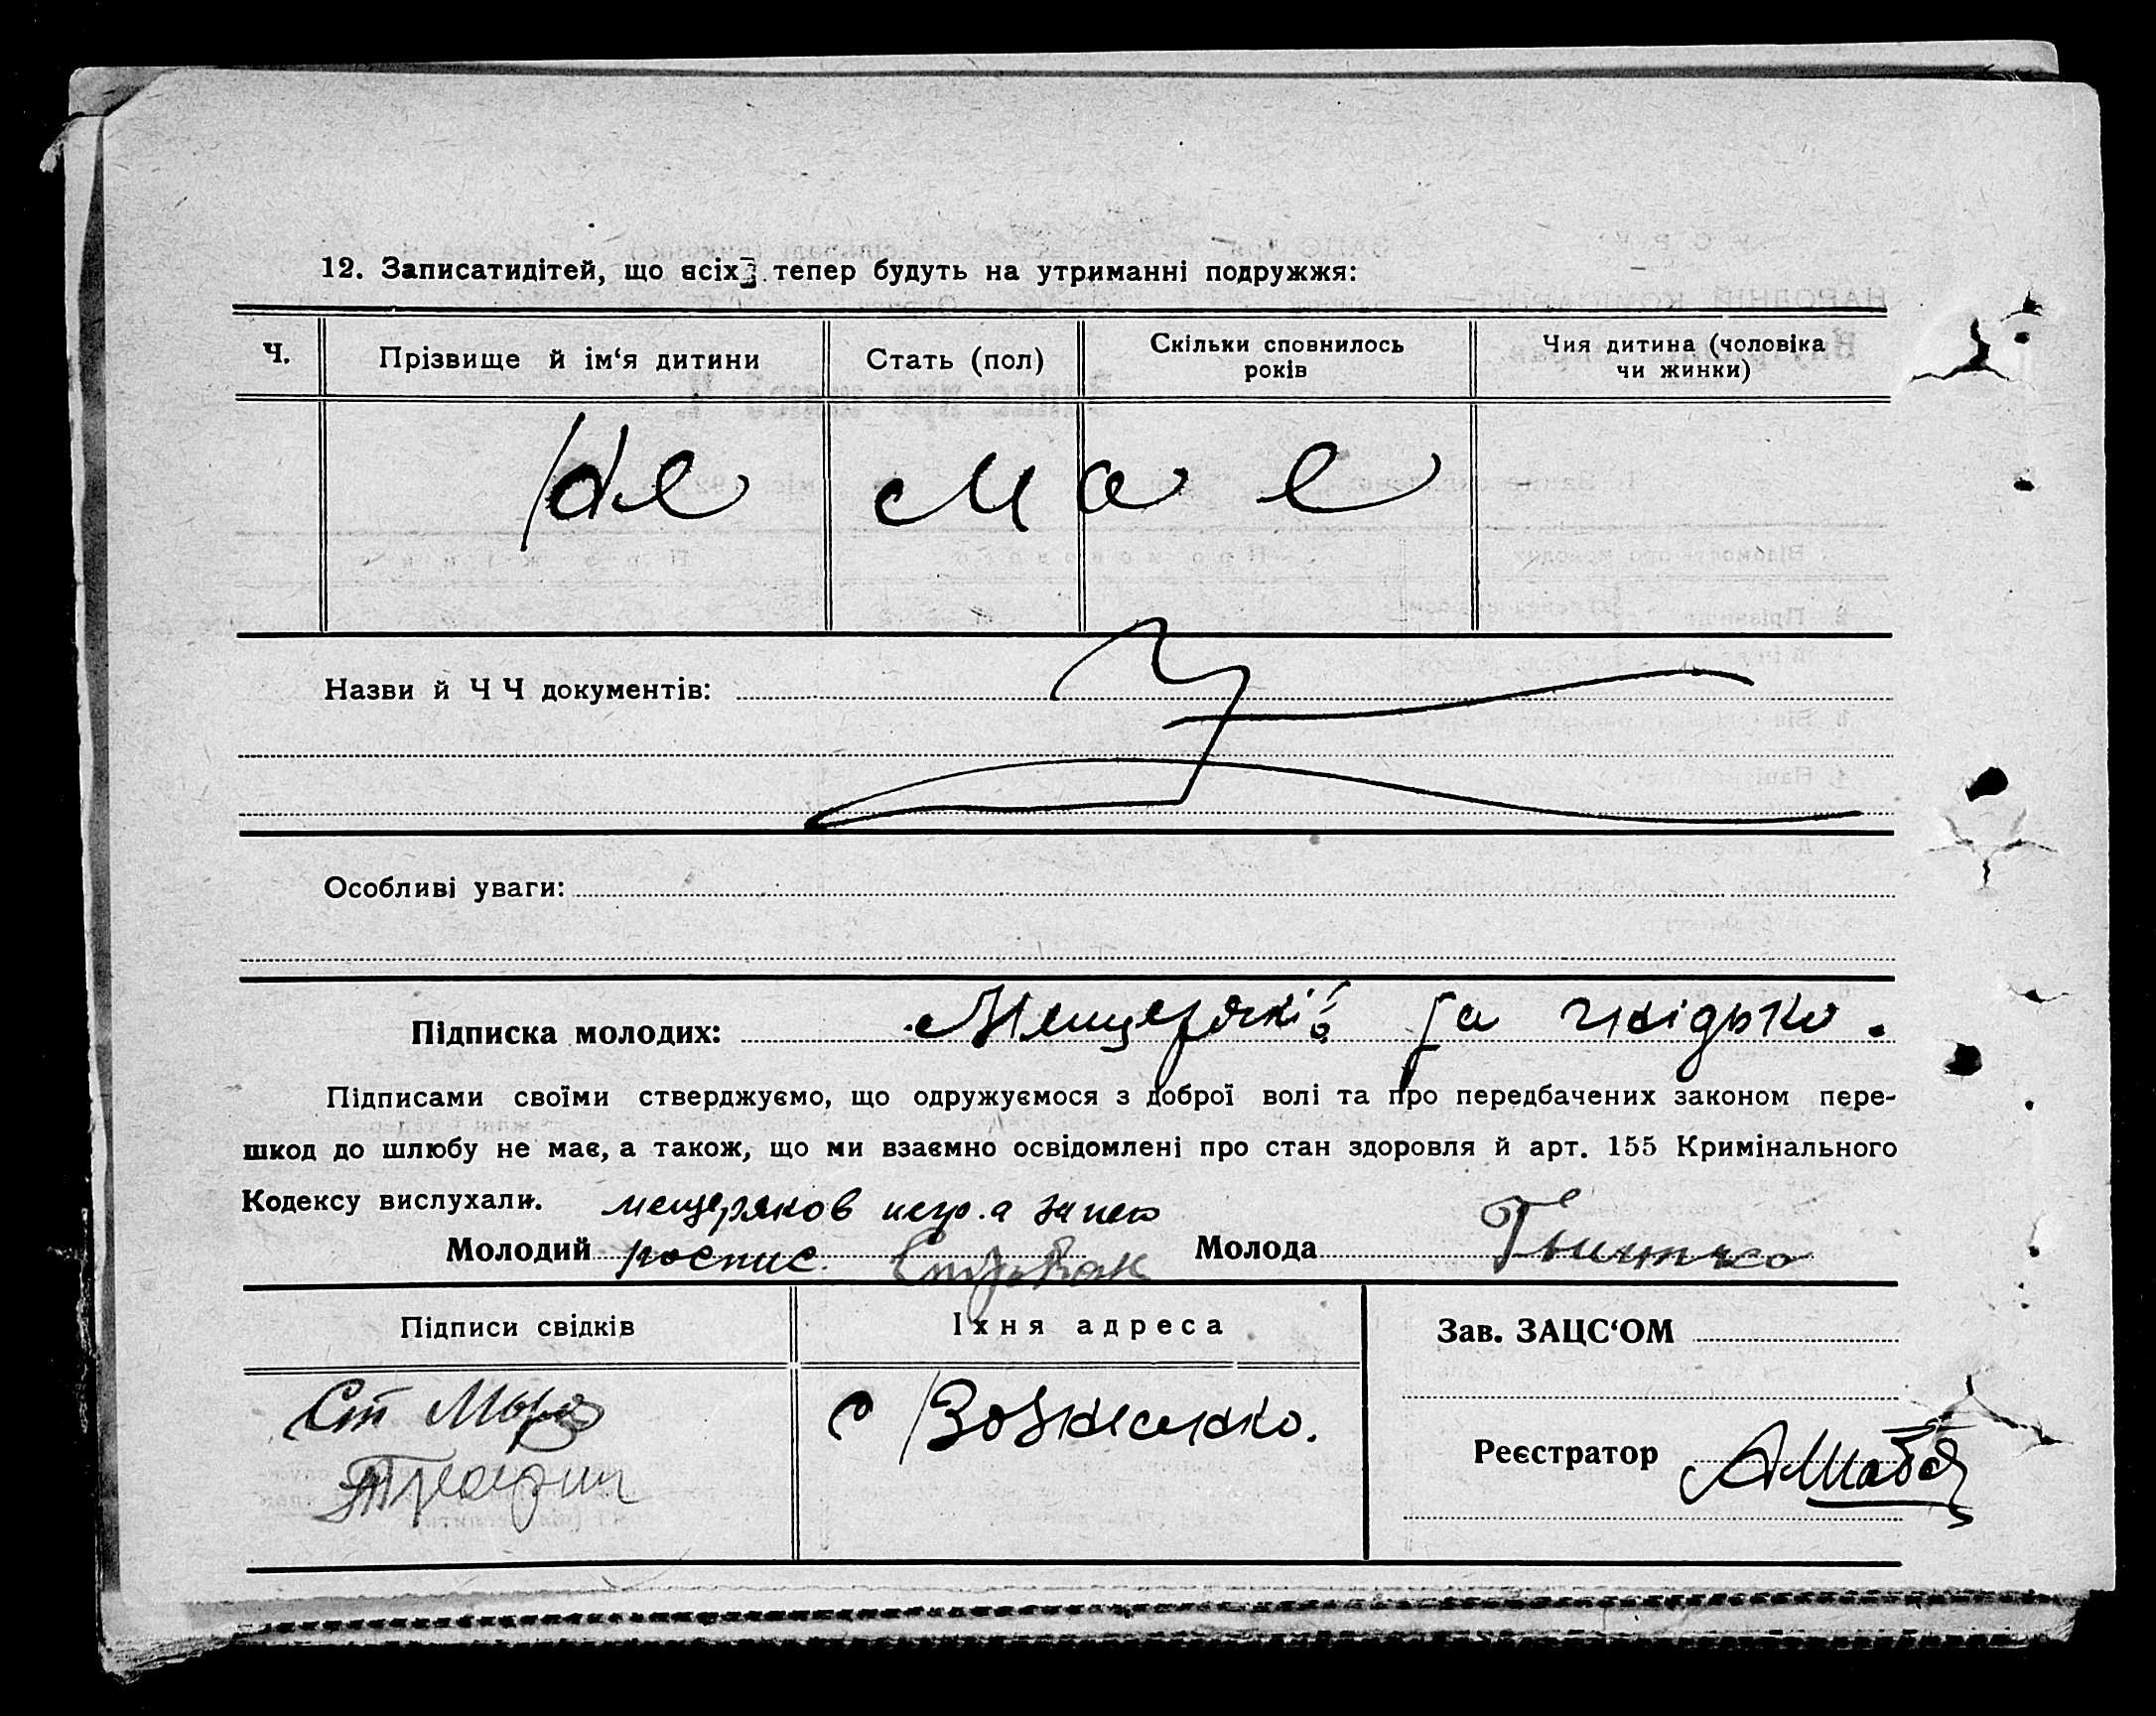 12. Записатидітей, що всіх тепер будуть на утриманні подружжя:
Ч.
Прізвище й ім‘я дитини
Стать (пол)
Скільки сповнилось
років
Чия дитина (чоловіка
чи жинки)
не має
Назви й Ч Ч документів:
Особливі уваги:
Підписка молодих: Мещерякі та
Підписами своїми стверджуємо, що одружуємося з доброї волі та про передбачених законом пере-
шкод до шлюбу не має, а також, що ми взаємно освідомлені про стан здоровля й арт. 155 Кримінального
Кодексу вислухали. мещеряков негр. а за него
Молодий роспис. Молода
Підписи свідків
Їхня адреса
Зав. ЗАЦС‘ОМ
с Вознесенко.
Реєстратор